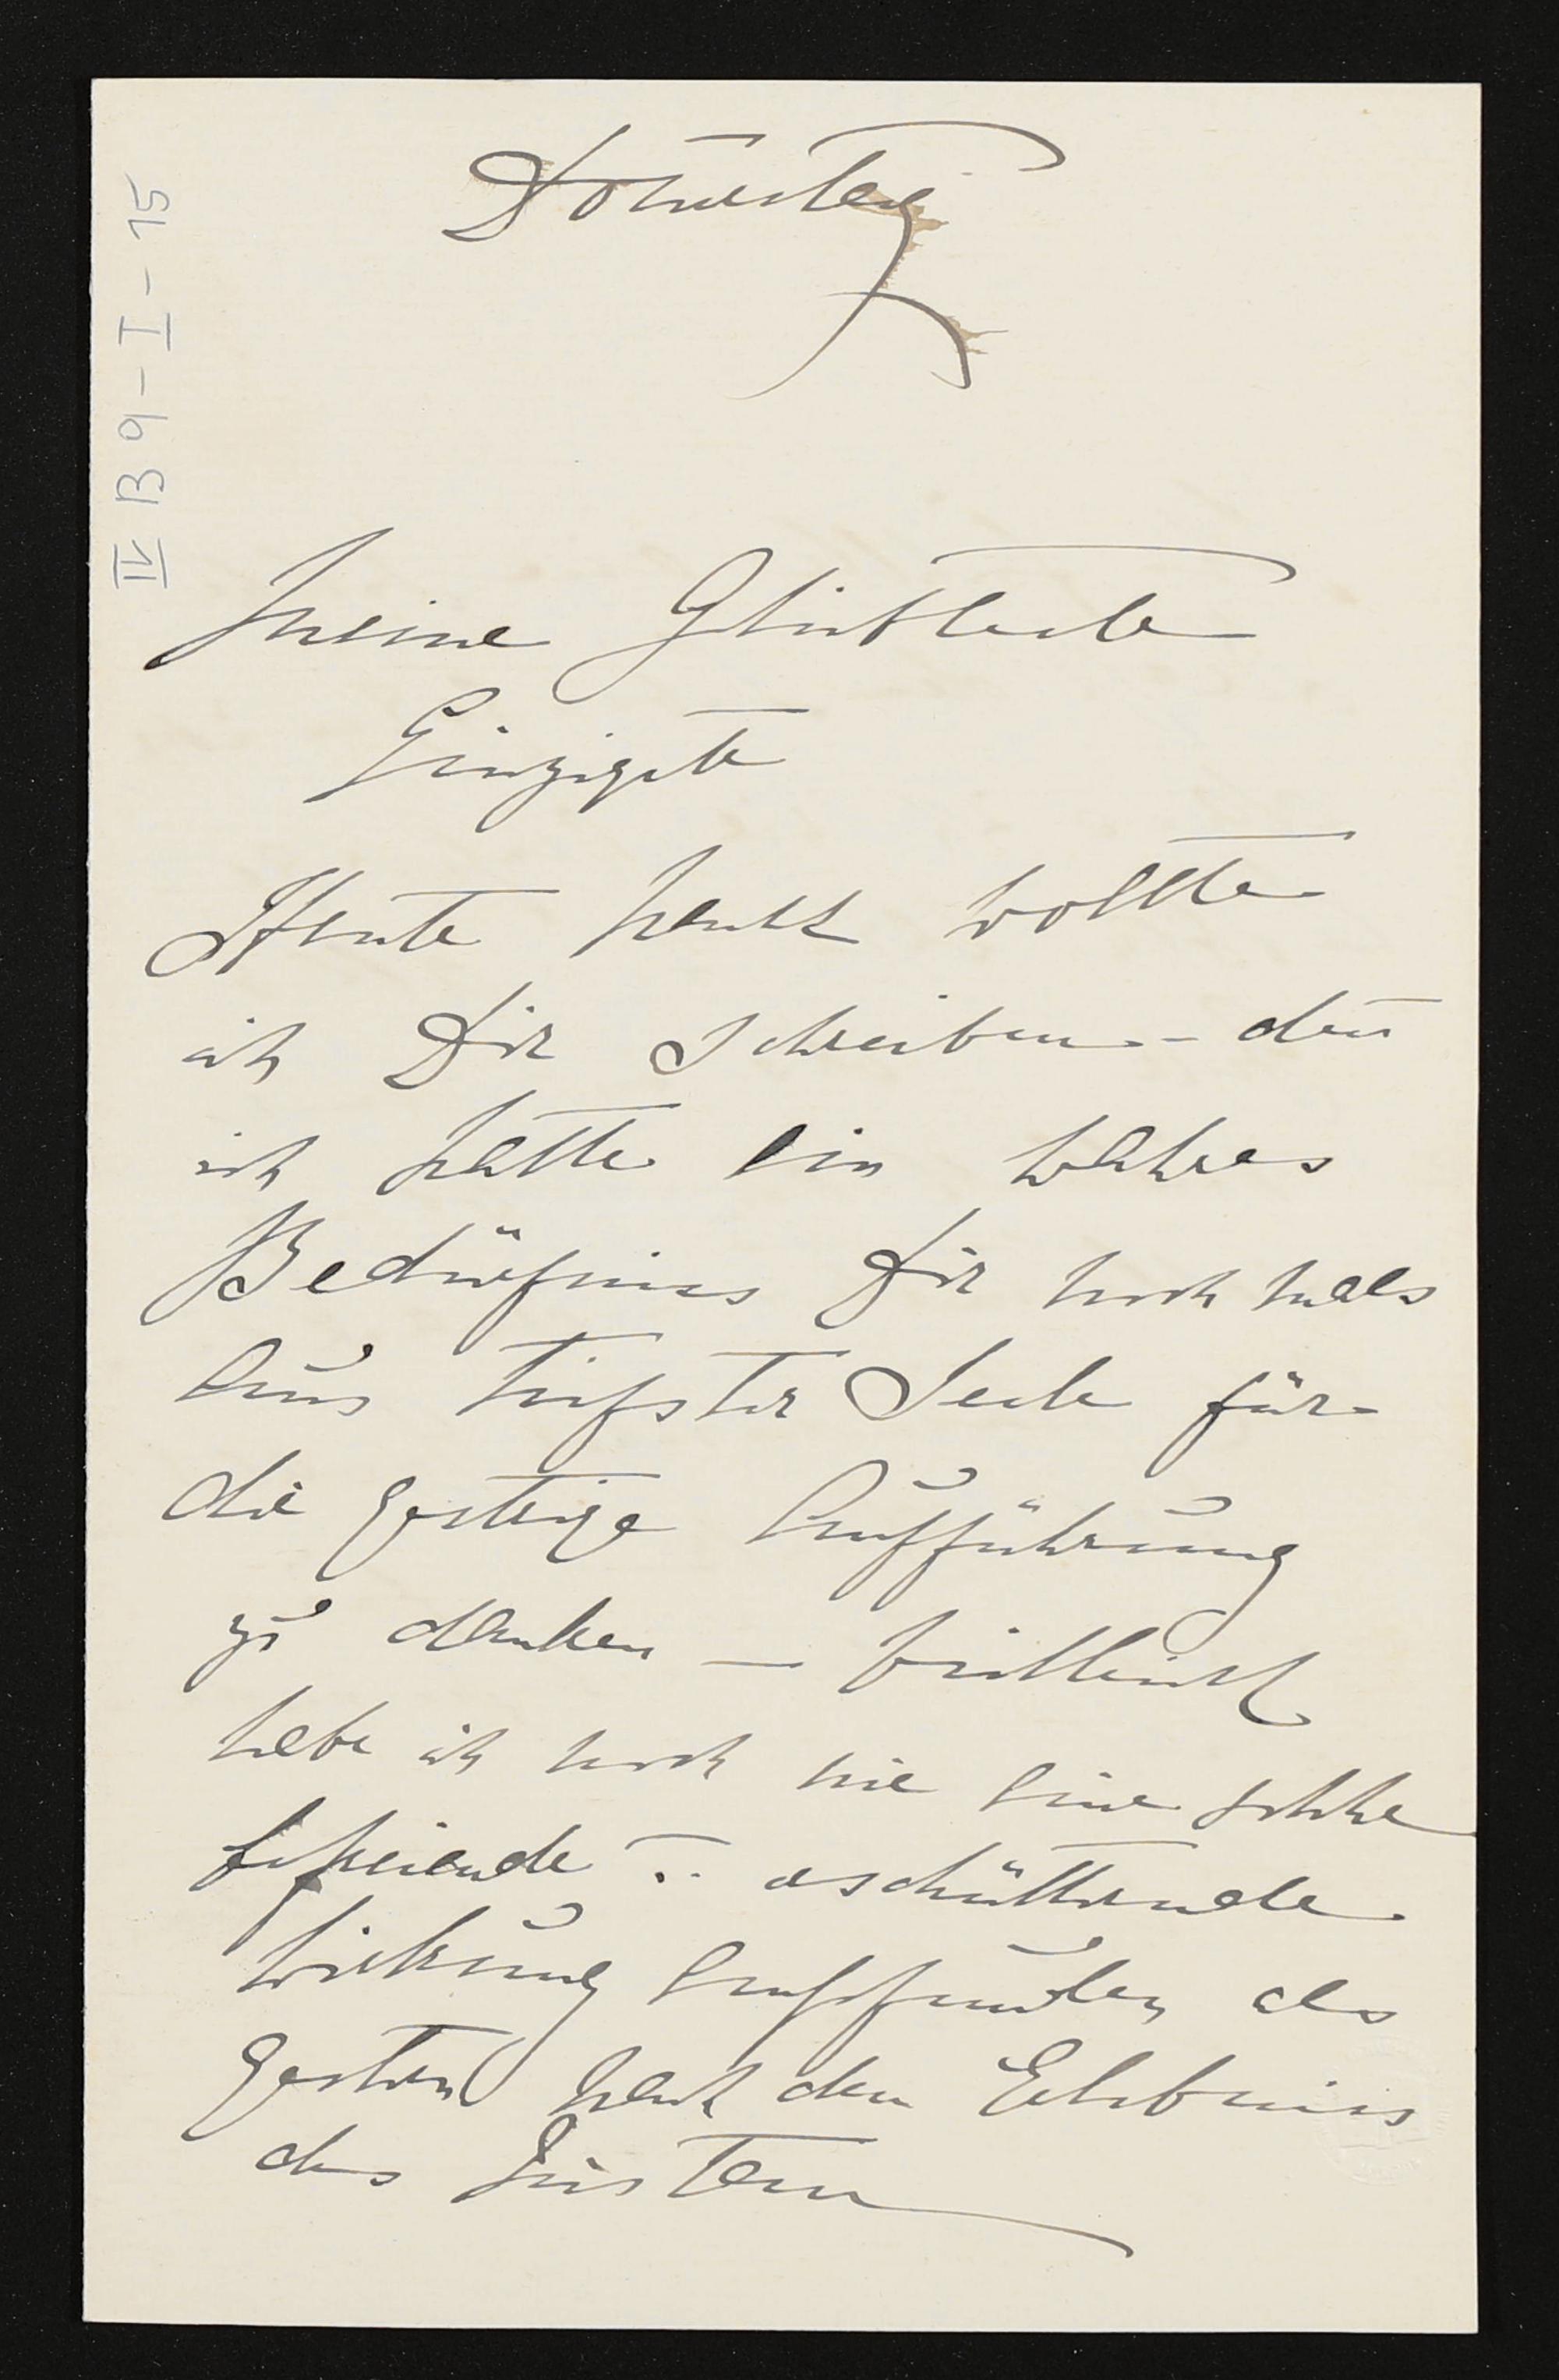 IV B9-I-15
Donnerstag
Meine Geliebteste
Einzigste
Heute Nacht wollte
ich Dir schreiben - den̄
ich hatte ein wahres
Bedürfniss Dir noch mals
aus tiefster Seele für
die gestrige Aufführung
zu danken — vielleicht
habe ich noch nie eine solche
befreiende u. erschütternde
Wirkung empfunden als
gestern nach dem Erlebniss
des